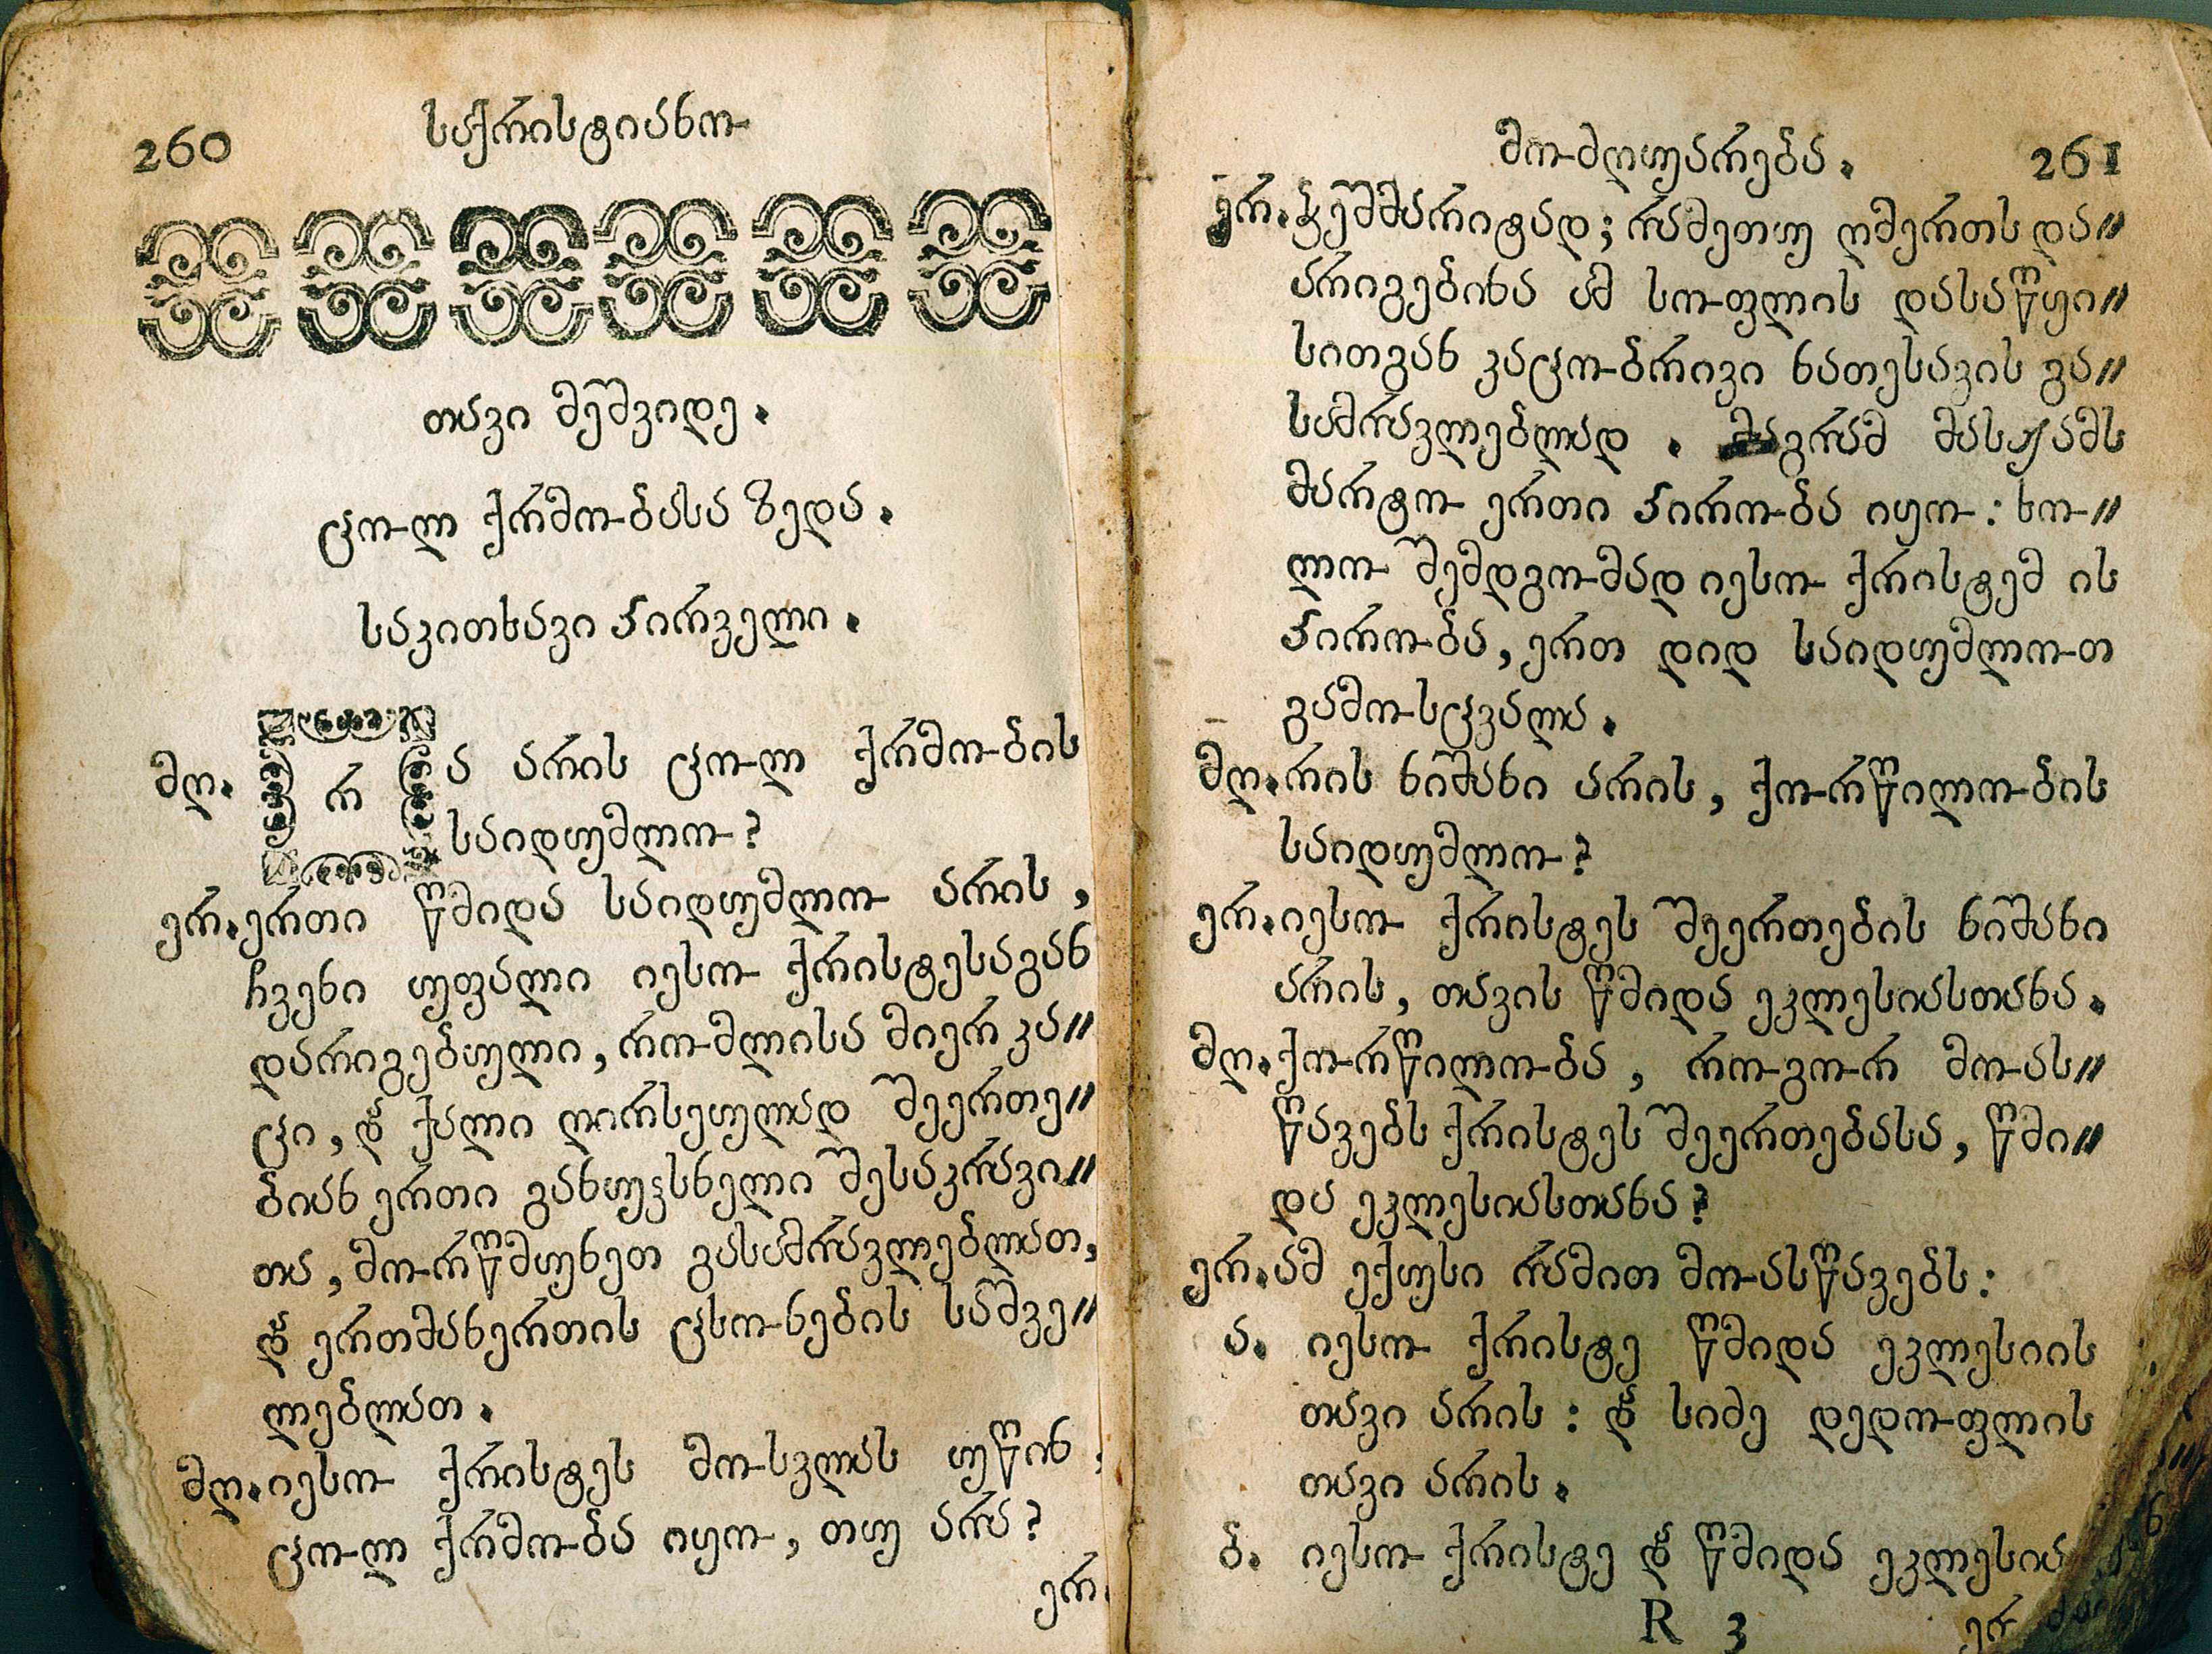 260
საქრისტიანო
თავი მეშვიდე.
ცოლ ქრმობასა ზედა.
საკითხავი პირველი.
მღ. რა არის ცოლ ქრმობის
საიდუმლო?
ერ. ერთი წმიდა საიდუმლო არის,
ჩვენი უფალი იესო ქრისტესაგან
დარიგებული, რომლისა მიერ კა〃
ცი, და ქალი ღირსეულად შეერთე〃
ბიან ერთი განუჴსნელი შესაკრავი〃
თა, მორწმუნეთ გასამრავლებლათ,
და ერთმანერთის ცხონების საშვე〃
ლებლათ.
მღ. იესო ქრისტეს მოსვლას უწინ,
ცოლ ქრმობა იყო, თუ არა?
ერ.
მოძღუარება. 261
ერ. ჭეშმარიტად; რამეთუ ღმერთს და〃
არიგებინა ამ სოფლის დასაწყი〃
სითგან კაცობრივი ნათესავის გა〃
სამრავლებლად. მაგრამ მასჟამს
მარტო ერთი პირობა იყო: ხო〃
ლო შემდგომად იესო ქრისტემ ის
პირობა, ერთ დიდ საიდუმლოთ
გამოსცვალა.
მღ. რის ნიშანი არის, ქორწილობის
საიდუმლო?
ერ. იესო ქრისტეს შეერთების ნიშანი
არის, თავის წმიდა ეკლესიასთანა.
მღ. ქორწილობა, როგორ მოას〃
წავებს ქრისტეს შეერთებასა, წმი〃
და ეკლესიასთანა?
ერ. ამ ექუსი რამით მოასწავებს:
ა. იესო ქრისტე წმიდა ეკლესიის
თავი არის: და სიძე დედოფლის
თავი არის.
ბ. იესო ქრისტე და წმიდა ეკლესია
R 3 ერ